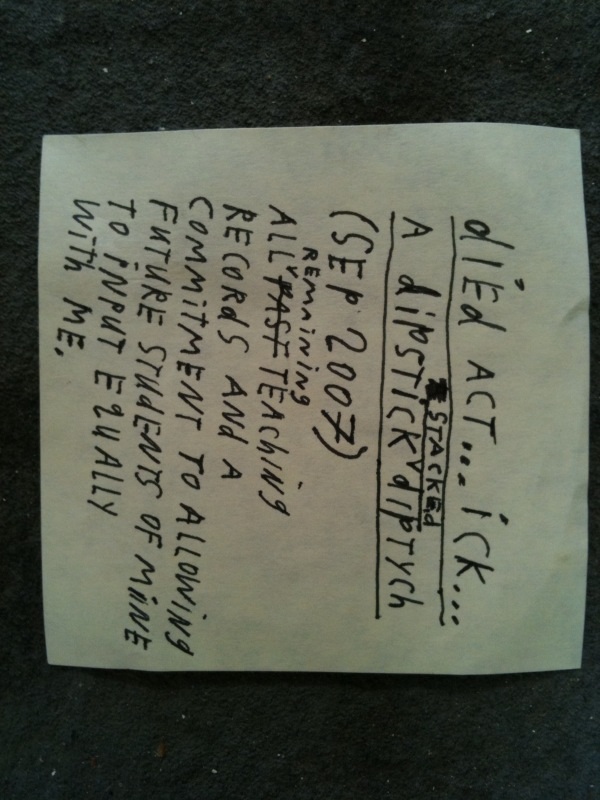 dIEd ACT... ICK...
A dIPSTICK STACKED dIPTYCH
(SEP 2007)
ALL PAST REMAINING TEACHING
RECORdS ANd A
COMMITMENT TO ALLOWING
FUTURE STUdENTS OF MINE
TO INPUT EQUALLY
WITH ME.